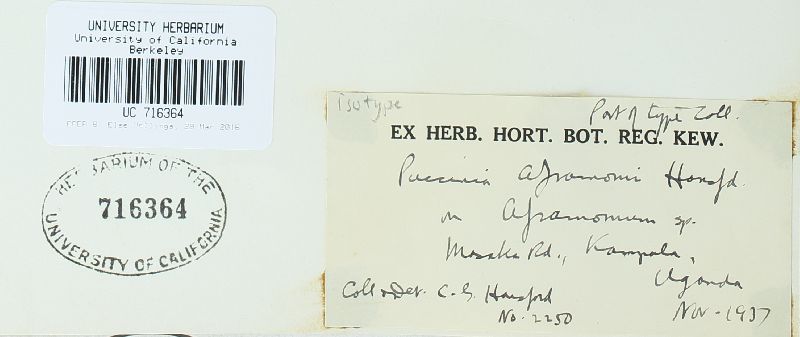 UNIVERSITY HERBARIUM
University of California
Berkeley
UC 716364
HERBARIUM OF THE
716364
UNIVERSITY OF CALIFORNIA
Isotype
Part of type Coll.
EX HERB. HORT. BOT. REG. KEW.
Puccinia aframomi Hansfd.
on Aframomum sp.
Masaka Rd., Kampala,
Uganda
Coll & Det. C. G. Hansford
No. 2250
Nov - 1937